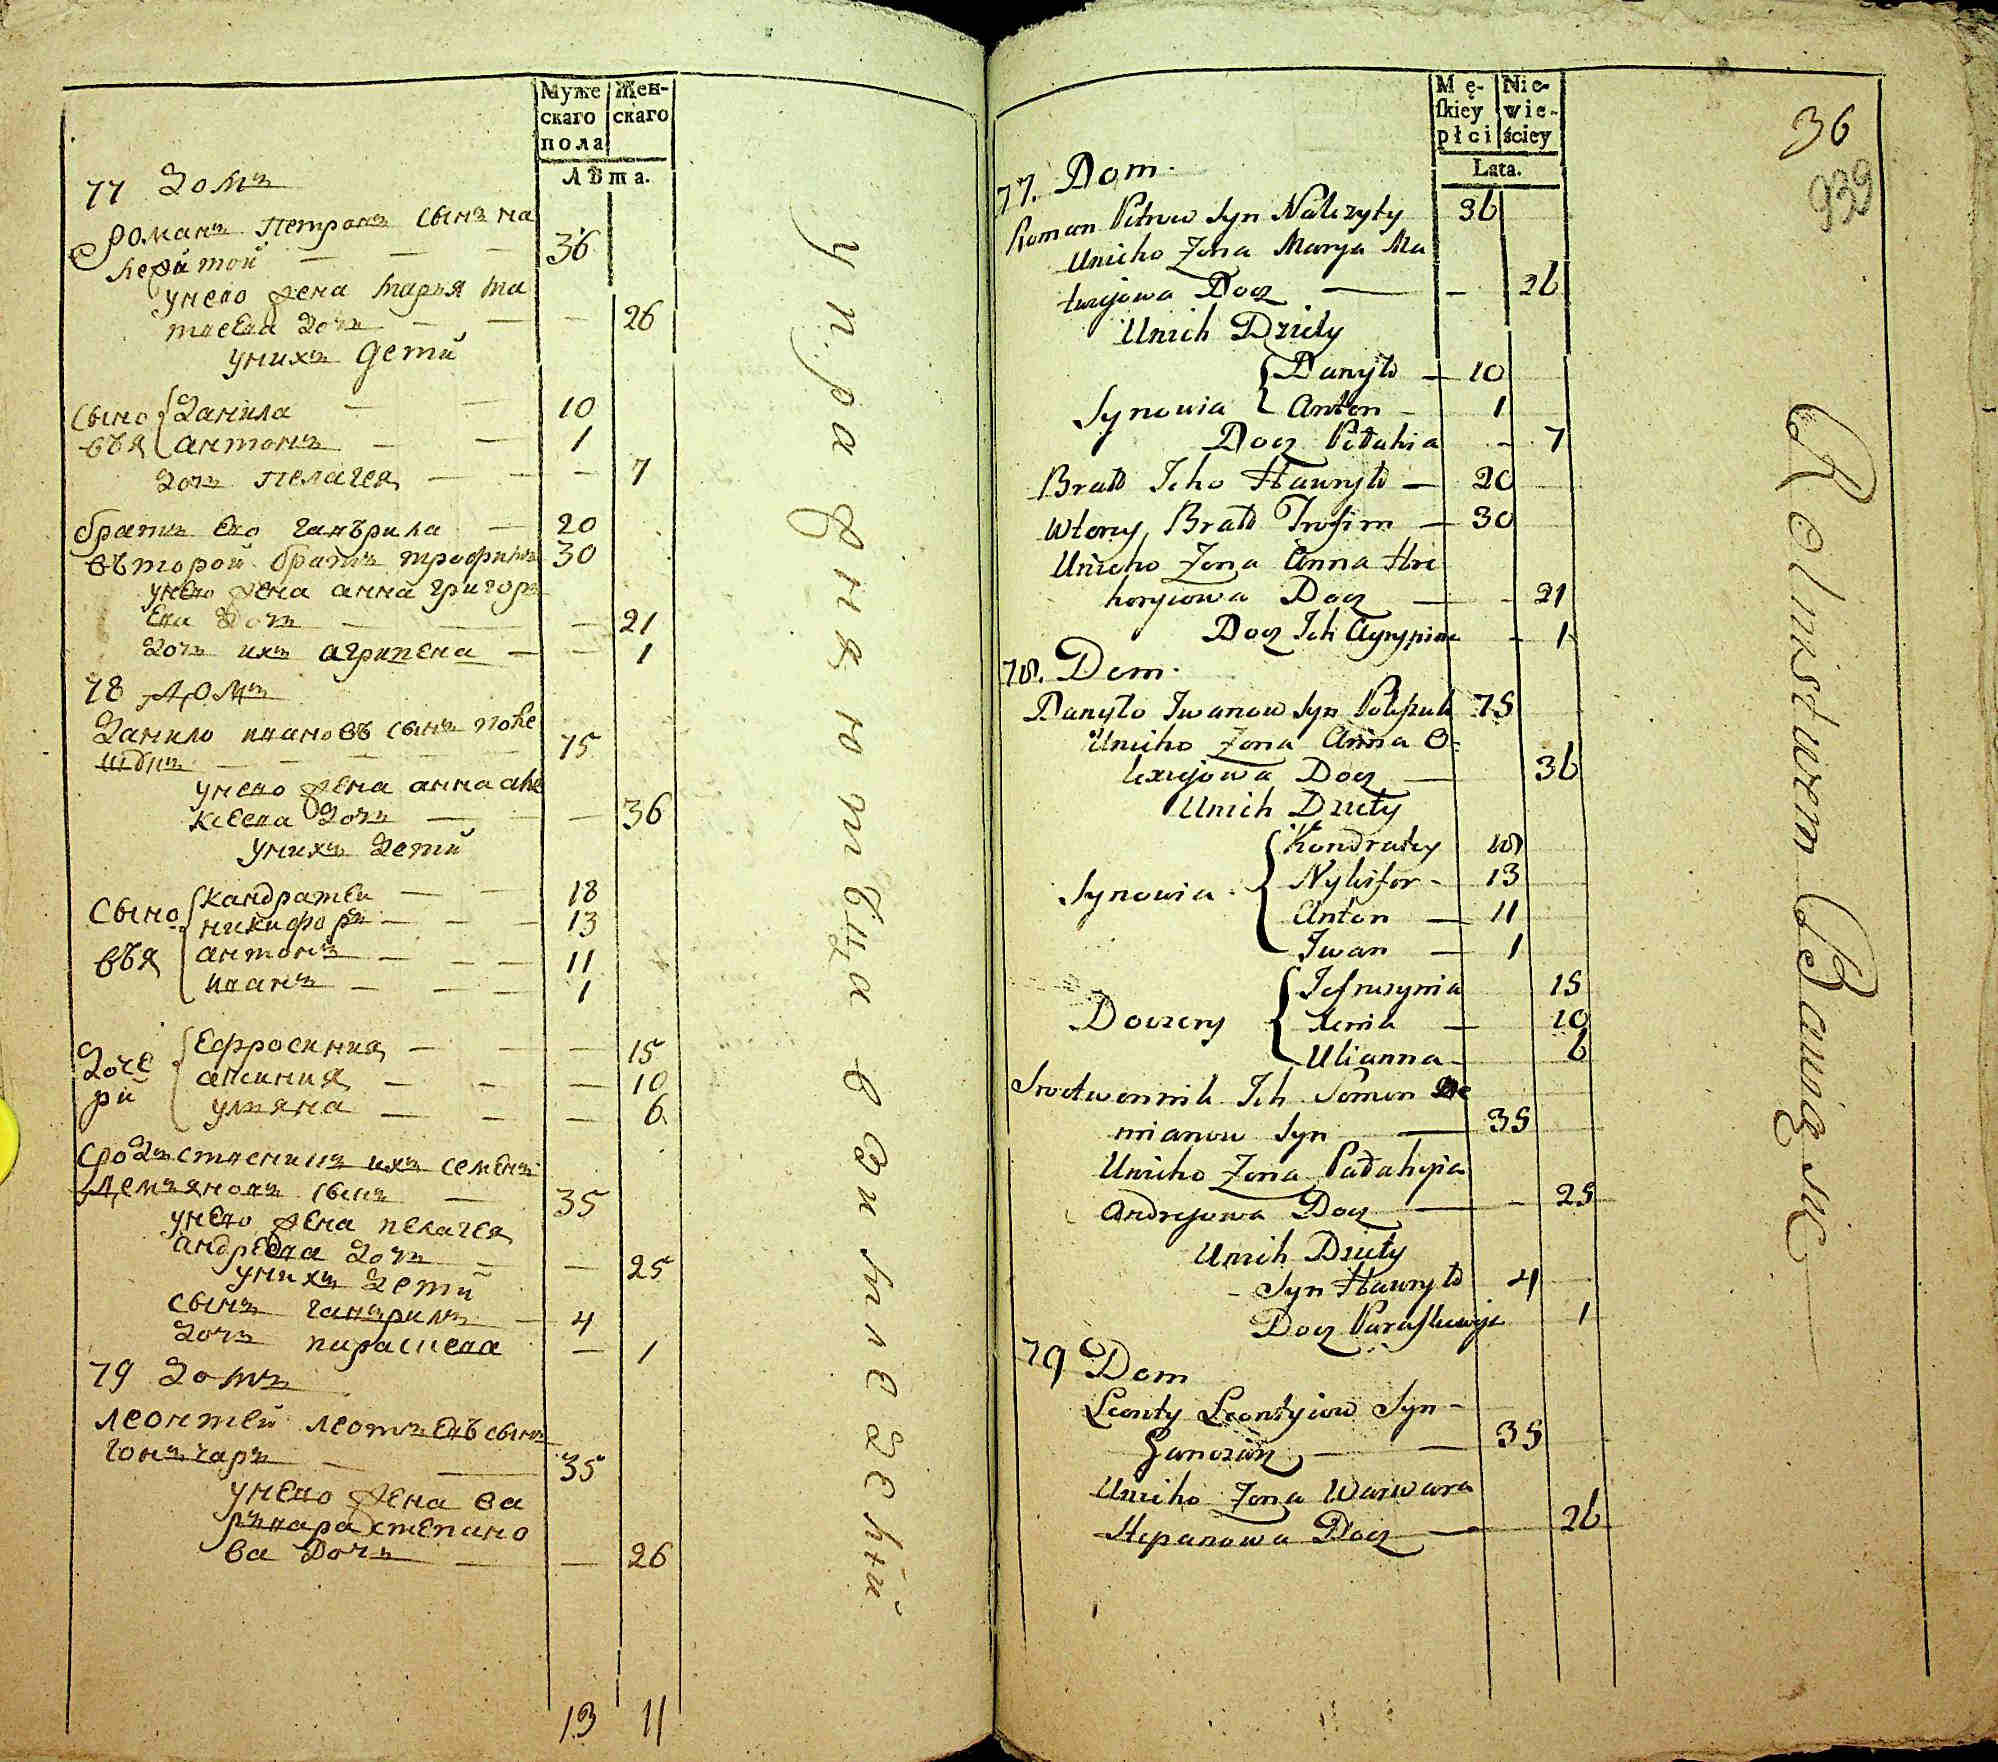 Муже
скаго
пола
Жен-
скаго
Лѣта.
77 Домъ
Романъ Петровъ сынъ на
леритой — — — 36
унево жена марья ма
тѳеева дочъ — — — 26
унихъ дети
Сыно
въя
Данила — — 10
антонъ — — 1
дочъ пелагея — — — 7
братъ ево гавърила — 20
въторой братъ трофимъ 30
унево жена анна григорь
ева дочъ — — — 21
дочъ ихъ агрипена — — 1
78 Домъ
Данило ивановъ сынъ поле
шукъ — — — 75
унево жена анна але
ксеева дочъ — — — 36
унихъ дети
Сыно
въя
кандратей — — 18
никифоръ — — 13
антонъ — — — 11
иванъ — — — 1
Доче
рй
Ефросиния — — — 15
аксиния — — — 10
ульяна — — — 6
сродственикъ ихъ семенъ
Демъяновъ сынъ — 35
унево жена пелагея
андреева дочъ — — 25
унихъ дети
сынъ гаврилъ — 4
дочъ парасцева — 1
79 Домъ
леонтей леотьевъ сынъ
гонъчаръ — — 35
унево жена ва
рьвара степано
ва дочъ — — 26
13 11
у праднаго тѣца василедскй
Mę-
ſkiey
płci
Nie-
wie-
ściey
Lata.
36
939
77. Dom.
Roman Petrow Syn Nalezyty 36
Unieho Zona Marya Ma
twejowa Docz — — 26
Unich Dziety
Synowia
Danyło — 10
Anton — 1
Docz Pełahia — 7
Brath Jeho Hawryło — 20
Wtory Brath Trofim — 30
Unieho Zona Anna Hre
horyiowa Docz — - 21
Docz Ich Agrypina - 1
78. Dom.
Danyło Iwanow Syn Poleszuk 75
Unieho Zona Anna O=
lexiejowa Docz — 36
Unich Dziety
Synowia
Kondratey 18
Nykifor - 13
Anton — 11
Iwan — 1
Doczery
Jefruzynia 15
Xenia — 10
Ulianna - 6
Srodtwennik Ich Semen De
mianow Syn — 35
Unieho Zona Pałahyia
Andrejowa Docz — - 25
Unich Dziety
- Syn Hawryło 4
Docz Paraskiewija 1
79 Dom
Leonty Leontyiow Syn -
Ganczarz — — 35
Unieho Zona Warwara
Stepanowa Docz — 26